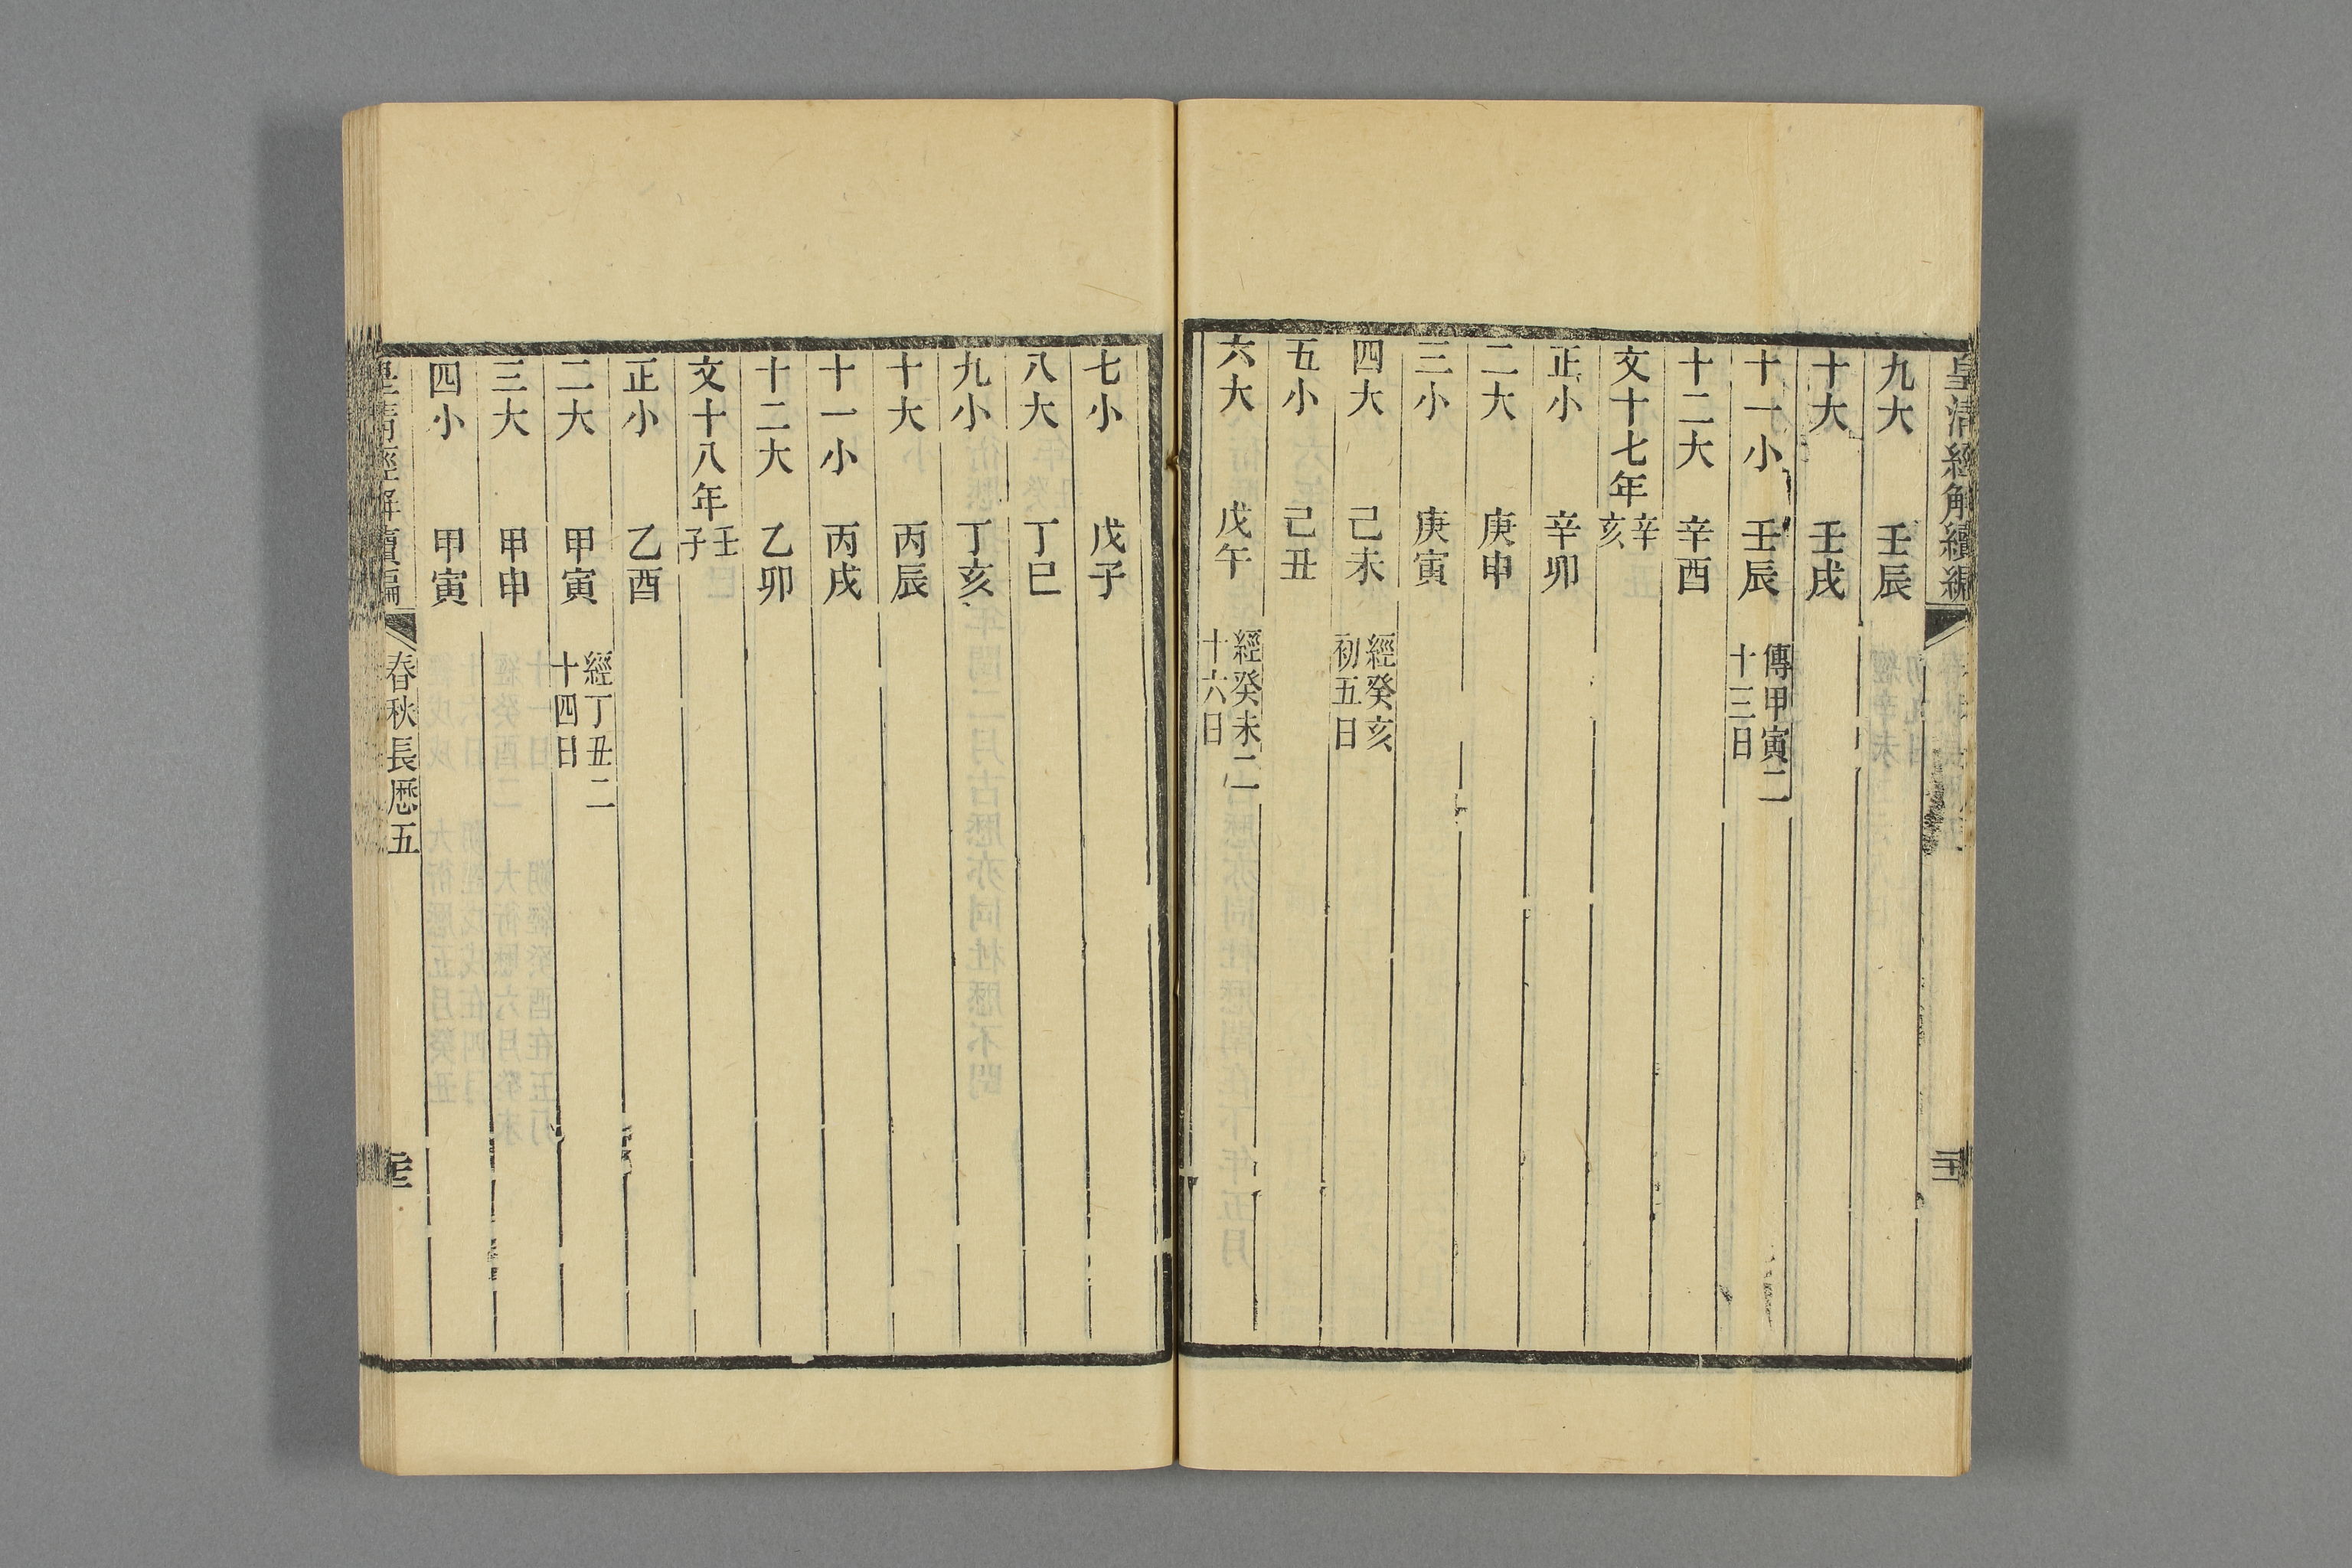 皇清經解續編
九大 壬辰
十大 壬戌
十一小 壬辰 傳甲寅二十三日
十二大 辛酉
文十七年 辛亥
正小 辛卯
二大 庚申
三小 庚寅
四大 己未 經癸亥初五日
五小 己丑
六大 戊午 經癸未二十六日
七小 戊子
八大 丁巳
九小 丁亥
十大 丙辰
十一小 丙戌
十二大 乙卯
文十八年 壬子
正小 乙酉
二大 甲寅 經丁丑二十四日
三大 甲申
四小 甲寅
皇清經解續編 春秋長厤五